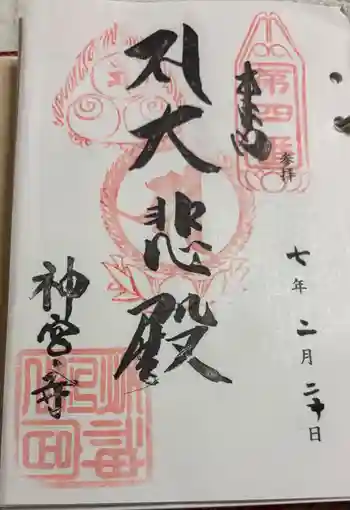 第四番
参拝
七年二月二十日
大悲殿
神宮寺